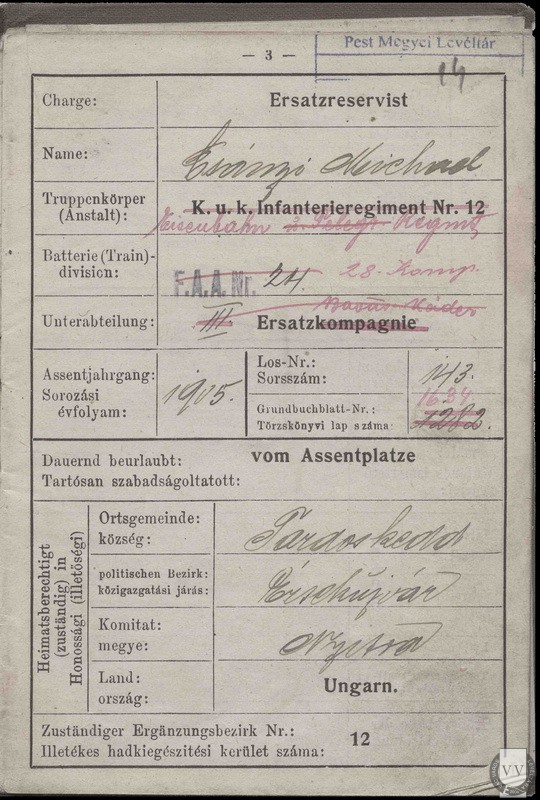 — 3 —
Pest Megyei Levéltár
14
Charge: Ersatzreservist
Name: Michael
Truppenkörper (Anstalt): K. u. k. Infanterieregiment Nr. 12
Eisenbahn Regmt
Batterie (Train)-division: F.A.A. Nr. 24. 28. Komp.
Unterabteilung: III. Ersatzkompagnie
Assentjahrgang:
Sorozási évfolyam: 1905.
Los-Nr.:
Sorsszám: 143.
1634
Grundbuchblatt-Nr.:
Törzskönyvi lap száma: 1282.
Dauernd beurlaubt: vom Assentplatze
Tartósan szabadságoltatott:
Heimatsberechtigt (zuständig) in
Honossági (illetőségi)
Ortsgemeinde:
község: Tardoskedd
politischen Bezirk:
közigazgatási járás: Érsekujvár
Komitat:
megye: Nyitra
Land:
ország: Ungarn.
Zuständiger Ergänzungsbezirk Nr.:
Illetékes hadkiegészitési kerület száma: 12
VV